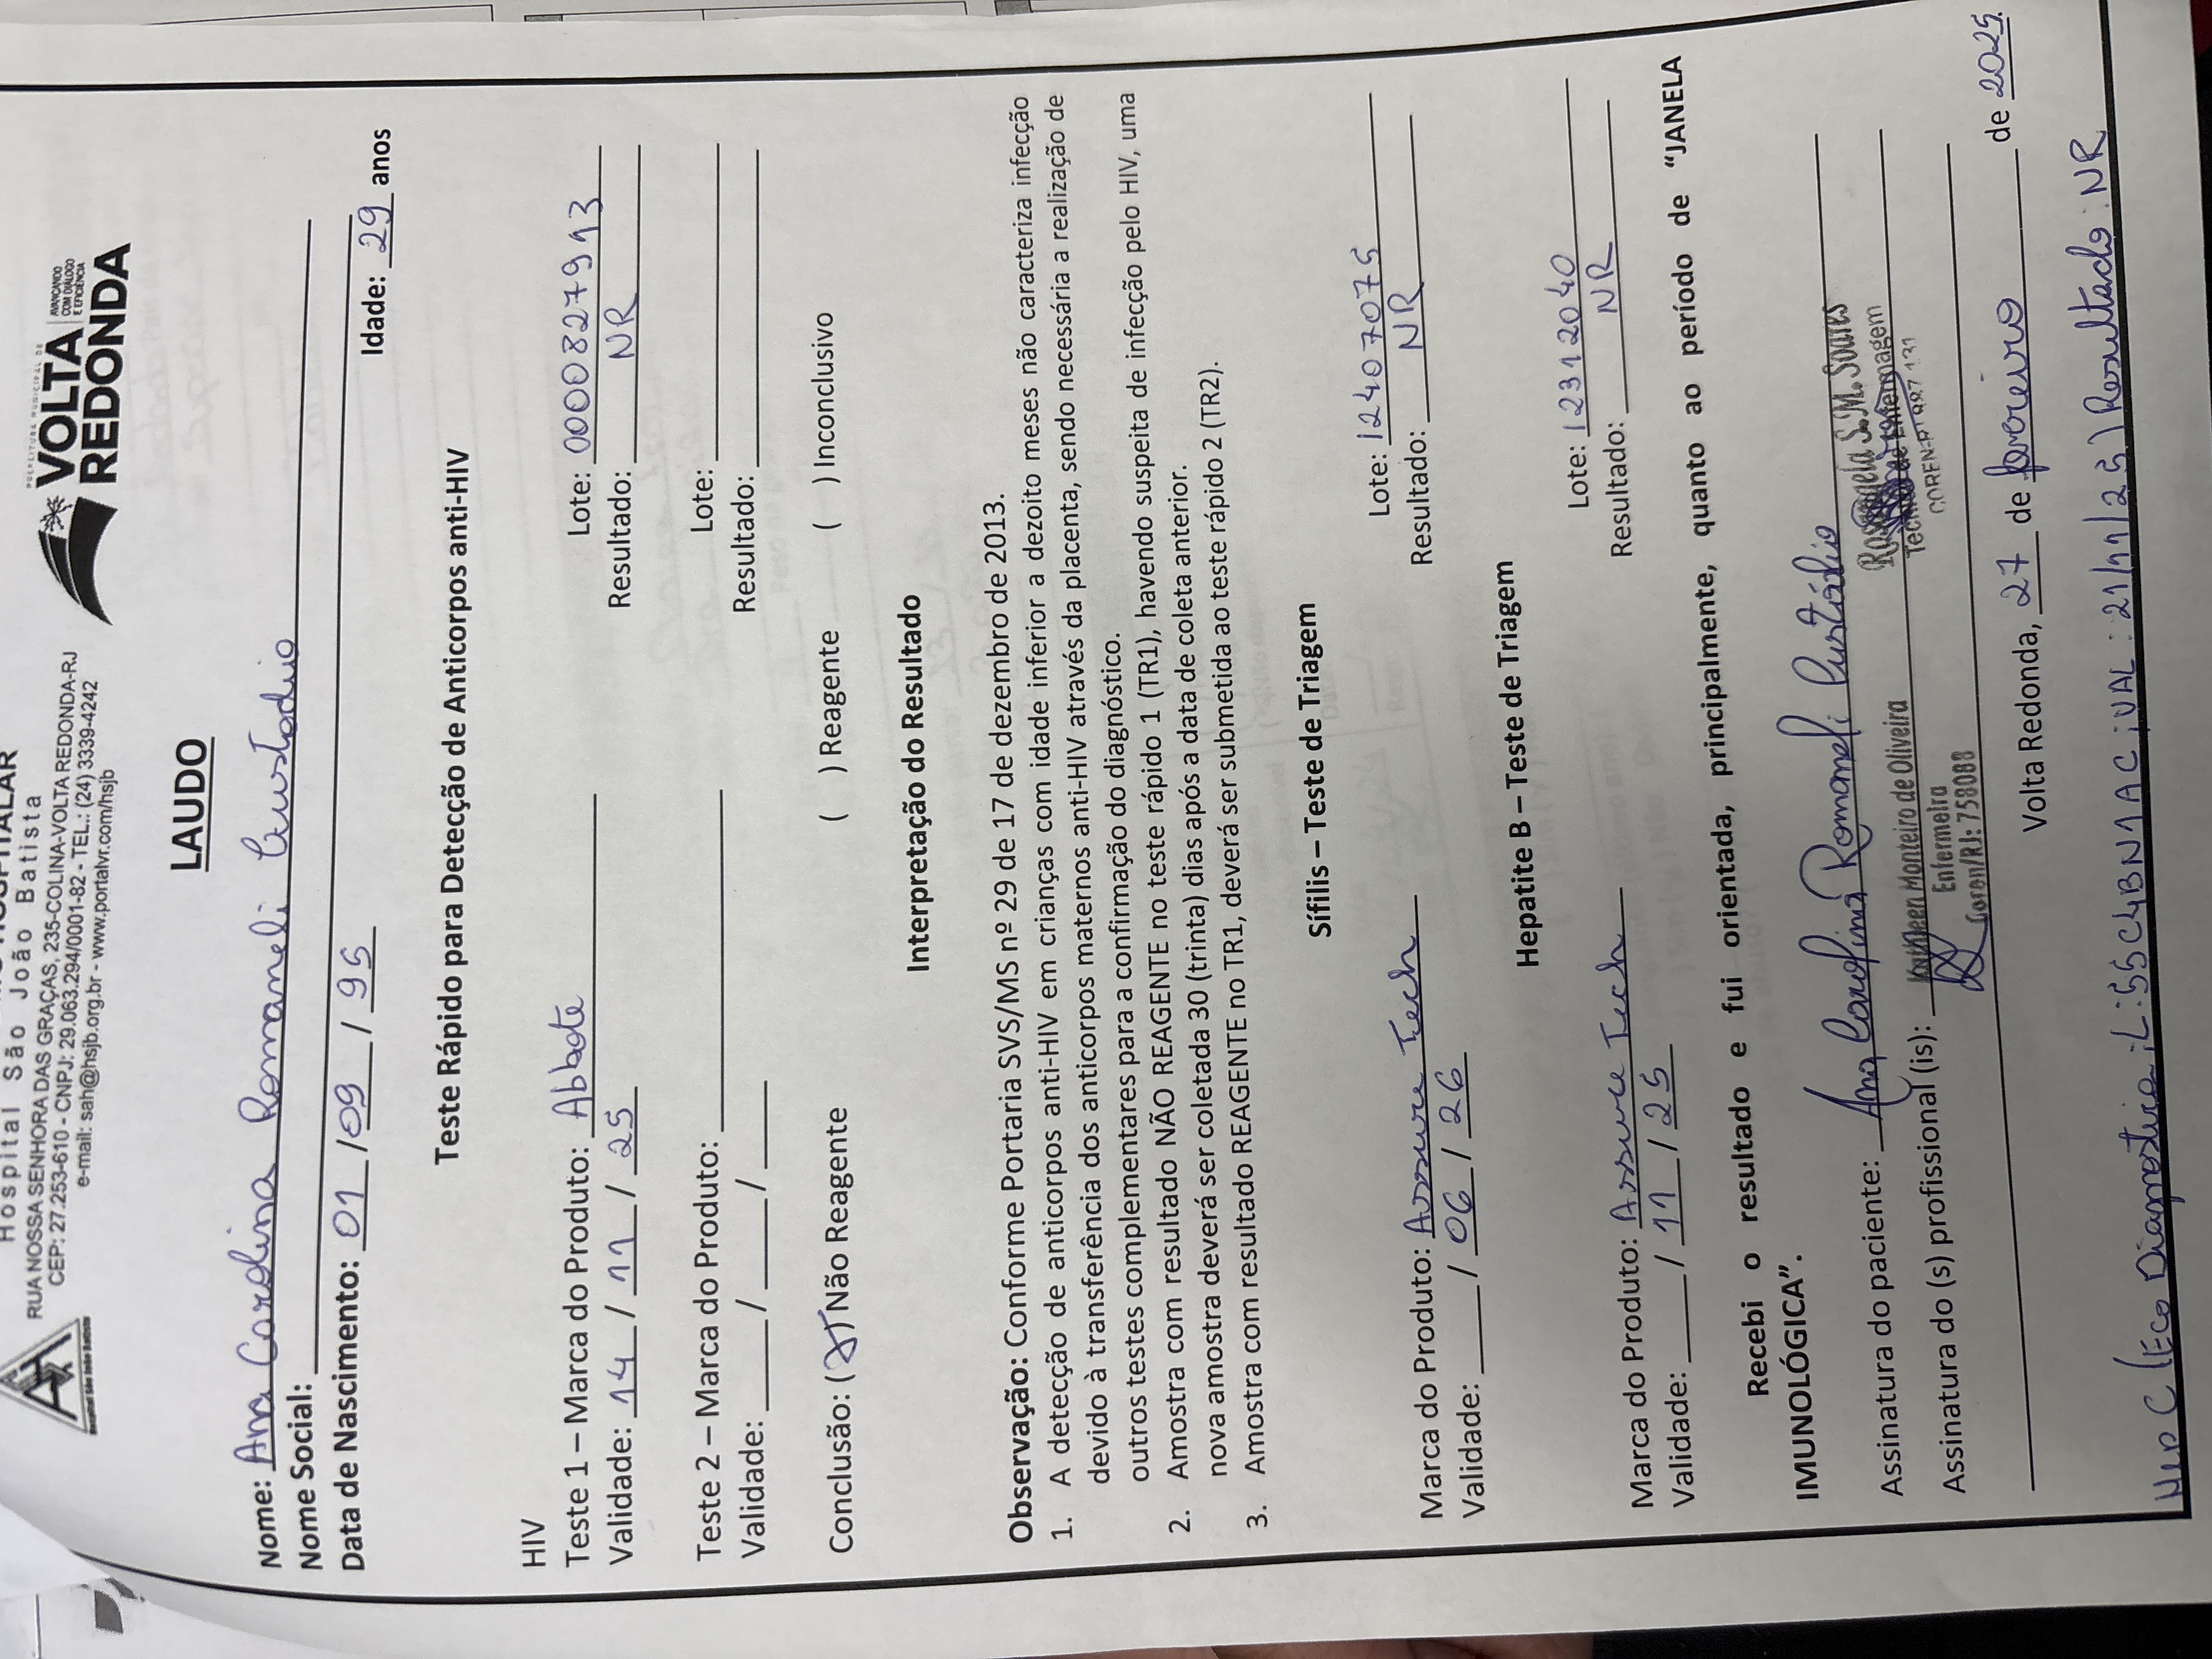 HOSPITALAR
Hospital São João Batista
RUA NOSSA SENHORA DAS GRAÇAS, 235-COLINA-VOLTA REDONDA-RJ
CEP: 27.253-610 - CNPJ: 29.063.294/0001-82 - TEL.: (24) 3339-4242
e-mail: sah@hsjb.org.br - www.portalvr.com/hsjb
PREFEITURA MUNICIPAL DE
VOLTA
REDONDA
AVANÇANDO
COM DIÁLOGO
E EFICIÊNCIA
LAUDO
Nome: Ana Carolina Romaneli Custodio
Nome Social:
Data de Nascimento: 01 / 09 / 95 Idade: 29 anos
Teste Rápido para Detecção de Anticorpos anti-HIV
HIV
Teste 1 – Marca do Produto: Abbote Lote: 0000827913
Validade: 14 / 11 / 25 Resultado: NR
Teste 2 – Marca do Produto: Lote:
Validade: / / Resultado:
Conclusão: ( ) Não Reagente ( ) Reagente ( ) Inconclusivo
Interpretação do Resultado
Observação: Conforme Portaria SVS/MS nº 29 de 17 de dezembro de 2013.
1. A detecção de anticorpos anti-HIV em crianças com idade inferior a dezoito meses não caracteriza infecção
devido à transferência dos anticorpos maternos anti-HIV através da placenta, sendo necessária a realização de
outros testes complementares para a confirmação do diagnóstico.
2. Amostra com resultado NÃO REAGENTE no teste rápido 1 (TR1), havendo suspeita de infecção pelo HIV, uma
nova amostra deverá ser coletada 30 (trinta) dias após a data de coleta anterior.
3. Amostra com resultado REAGENTE no TR1, deverá ser submetida ao teste rápido 2 (TR2).
Sífilis – Teste de Triagem
Marca do Produto: Assure Tech Lote: I2407075
Validade: / 06 / 26 Resultado: NR
Hepatite B – Teste de Triagem
Marca do Produto: Assure Tech Lote: I2312040
Validade: / 11 / 25 Resultado: NR
Recebi o resultado e fui orientada, principalmente, quanto ao período de “JANELA
IMUNOLÓGICA”.
Assinatura do paciente: Ana Carolina Romaneli Custódio
Rosangela S.M. Soares
Técnica de Enfermagem
COREN-RJ 887.131
Assinatura do (s) profissional (is): Kathleen Monteiro de Oliveira
Enfermeira
Coren/RJ: 758088
Volta Redonda, 27 de fevereiro de 2025.
Hep C (Eco Diagnóstica; L: 55C4BN1AC; VAL: 21/11/25) Resultado: NR